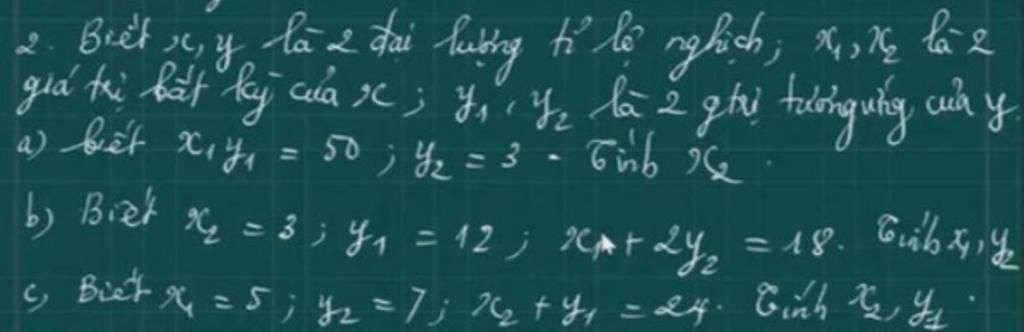 2. Biết x, y là 2 đại lượng tỉ lệ nghịch; x₁, x₂ là 2
giá trị bất kỳ của x; y₁, y₂ là 2 gtrị tương ứng của y.
a) biết x₁y₁ = 50; y₂ = 3 - Tính x₂.
b) Biết x₂ = 3; y₁ = 12; x₁ + 2y₂ = 18. Tính x₁, y₂
c, Biết x₁ = 5; y₂ = 7; x₂ + y₁ = 24. Tính x₂, y₁.